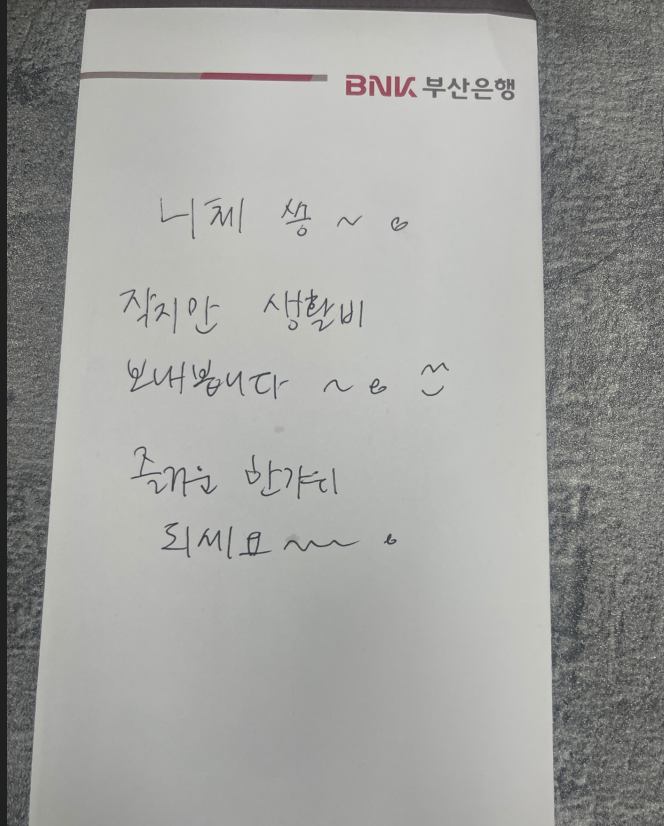 BNK 부산은행
니체 쌤~
작지만 생활비
보내봅니다 ~ ^^
즐거운 한가위
되세요~~~